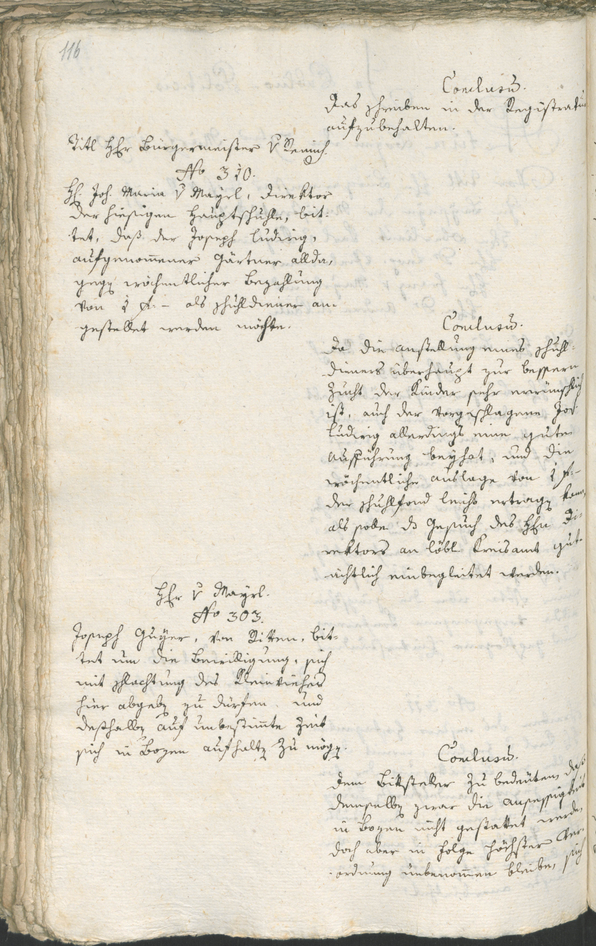 116
Conclusum.
das schreiben in der Registratur
aufzubehalten.
Titl Hr Burgermeister v Remich.
No 310.
H: Joh. Maria v Mayrl, Direktor
der hiesigen Hauptschuhle, bit-
tet, daß der Joseph Ludwig,
aufgenommener Gärtner allda,
gegen wöchentlicher Bezahlung
von 1 f – als schuhldiener an-
gestellet werden möchte.
Conclusum.
Da die anstellung eines schuhl-
dieners überhaupt zur bessern
Zucht der Kinder sehr erwünschlich
ist, auch der vorgeschlagene Jos:
Ludwig allerdings eine gute
Aufführung beÿhat, und die
wöchentliche auslage von 1 f –
der schuhlfond leicht ertragen kann,
als solle das Gesuch des Hrn Di-
rektors an löbl. Kreisamt gut-
achtlich einbegleitet werden.
Hr v Mayrl.
No 303.
Joseph Guÿer, von Ritten, bit-
tet um die Bewilligung, sich
mit schlachtung des Kleinviehes
hier abgeben zu dürfen, und
deßhalben auf unbestimmte Zeit
sich in Bozen aufhalten zu mögen.
Conclusum.
dem Bittsteller zu bedeuten, daß
demselben zwar die ansessigkeit
in Bozen nicht gestattet werde,
doch aber in Folge höchster Ver-
ordnung unbenommen bleibe, sich